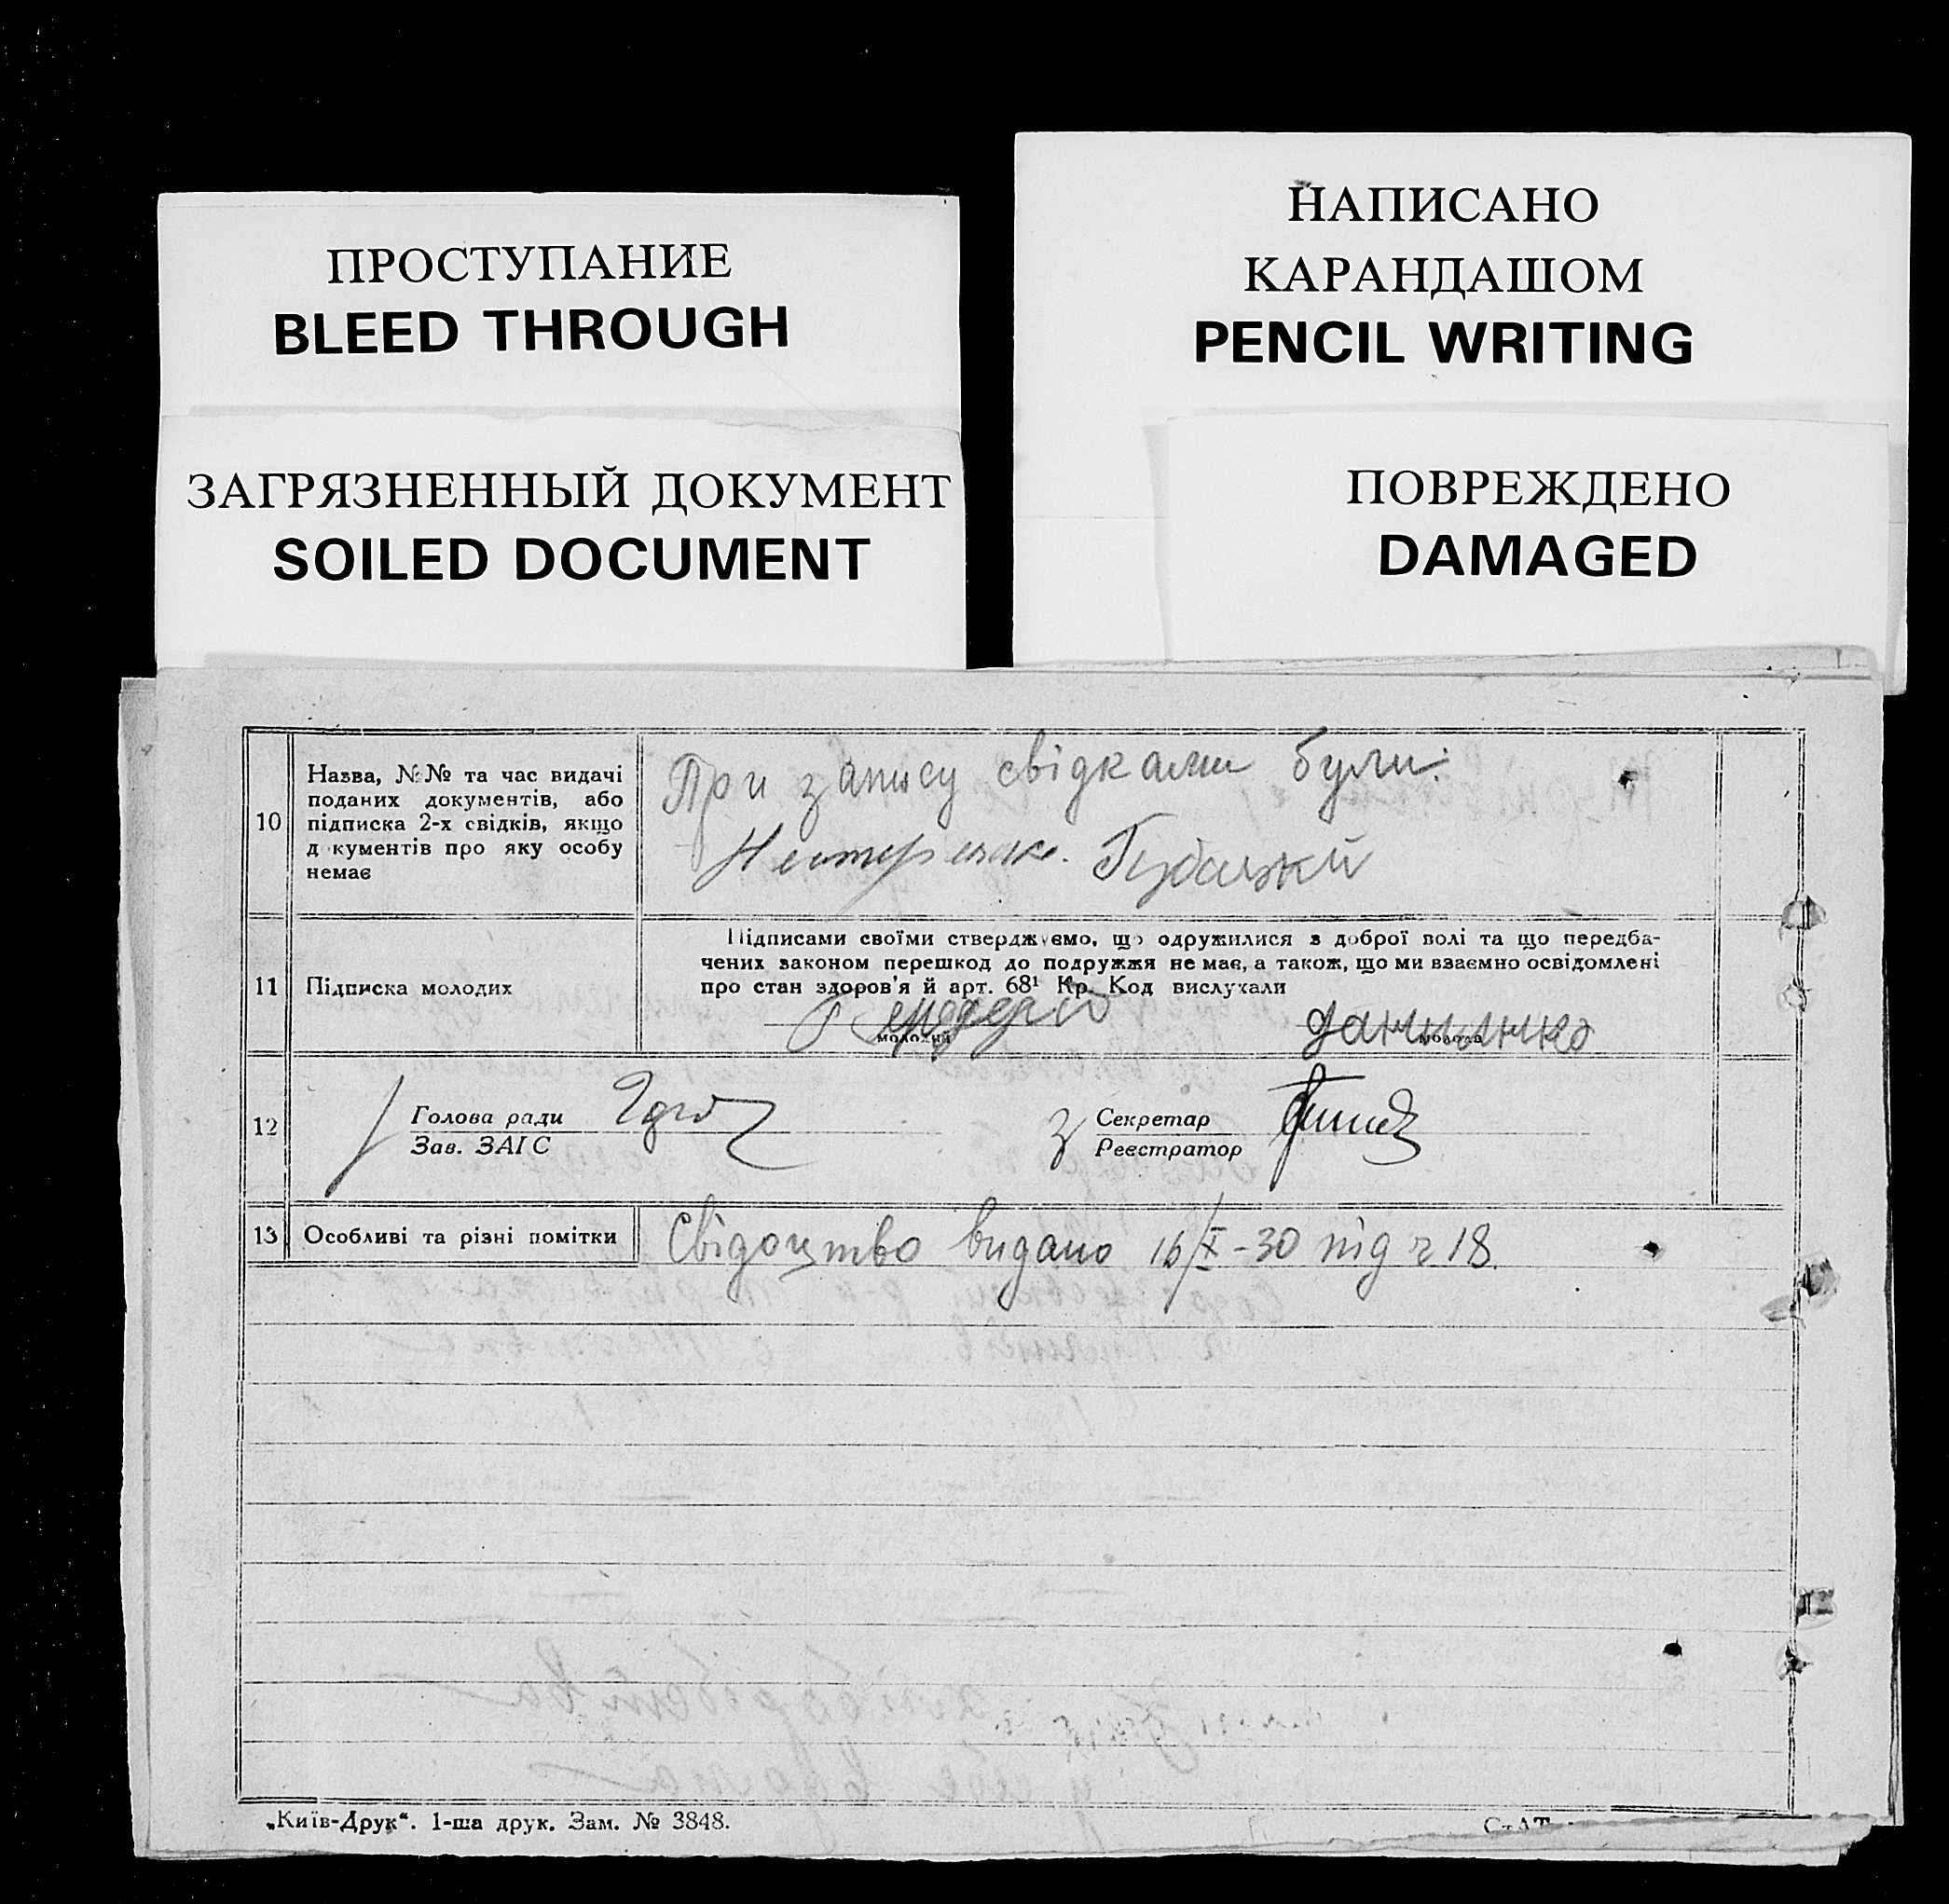 ПРОСТУПАНИЕ
BLEED THROUGH
НАПИСАНО
КАРАНДАШОМ
PENCIL WRITING
ЗАГРЯЗНЕННЫЙ ДОКУМЕНТ
SOILED DOCUMENT
ПОВРЕЖДЕНО
DAMAGED
10
Назва, №№ та час видачі
поданих документів, або
підписка 2-х свідків, якщо
д кументів про яку особу
немає
При запису свідками були:
Нестеренко.
11
Підписка молодих
Підписами своїми стверджуємо, що одружилися з доброї волі та що передба-
чених законом перешкод до подружжя не має, а також, що ми взаємно освідомлені
про стан здоров'я й арт. 68¹ Кр. Код вислухали
молодий
молода
12
Голова ради
Зав. ЗАГС
З Секретар
Реєстратор
13
Особливі та різні помітки
Свідоцтво видано 16/X-30 під ч 18.
„Київ-Друк“. 1-ша друк. Зам. № 3848.